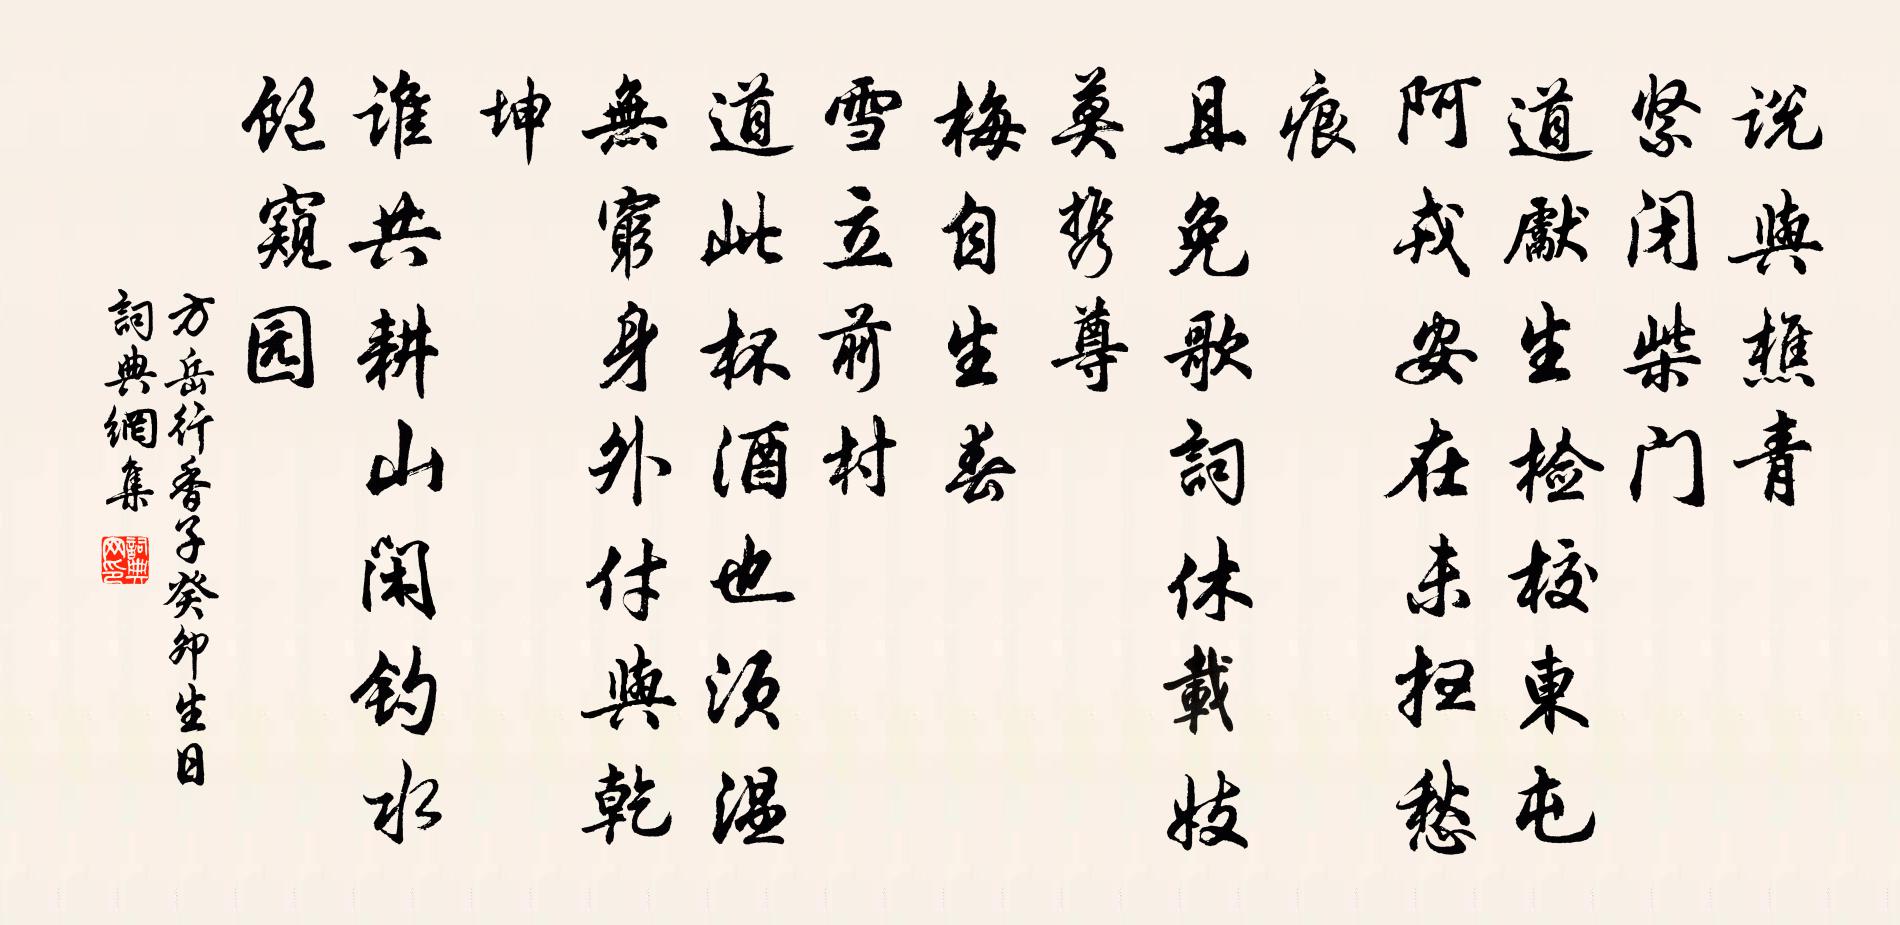 说與樵青
紧闭柴门
道獻生检校東屯
阿戎安在未愁
痕
且免歌詞休載妓
莫携尊
梅自生春
雪立前村
道此杯酒也须温
無窮身外付與乾
坤
谁共耕山闲钓水
饱窥园
方岳行香子癸卯生日
詞典網集
詞典网印